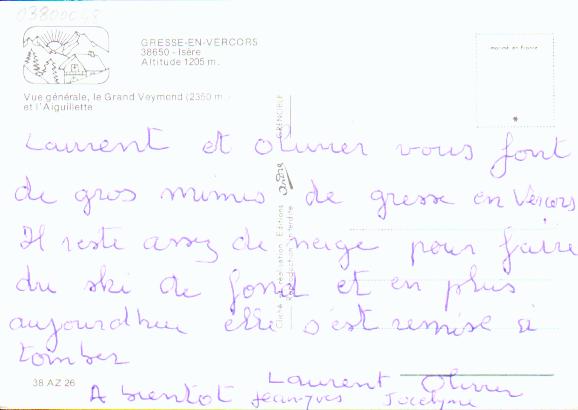 GRESSE-EN-VERCORS
38650 - Isère
Altitude 1205 m.
Vue générale, le Grand Veymond (2350 m.)
et l'Aiguillette
Imprimé en France
Laurent et Olivier vous font
de gros mimis de gresse en Vercors
Il reste assez de neige pour faire
du ski de fond et en plus
aujourdhui elle s'est remise à
tomber
Laurent Olivier
A bientot Jean-yves Jocelyne
38 AZ 26
Cliché et Réalisation : Editions GRENOBLE
Reproduction interdite